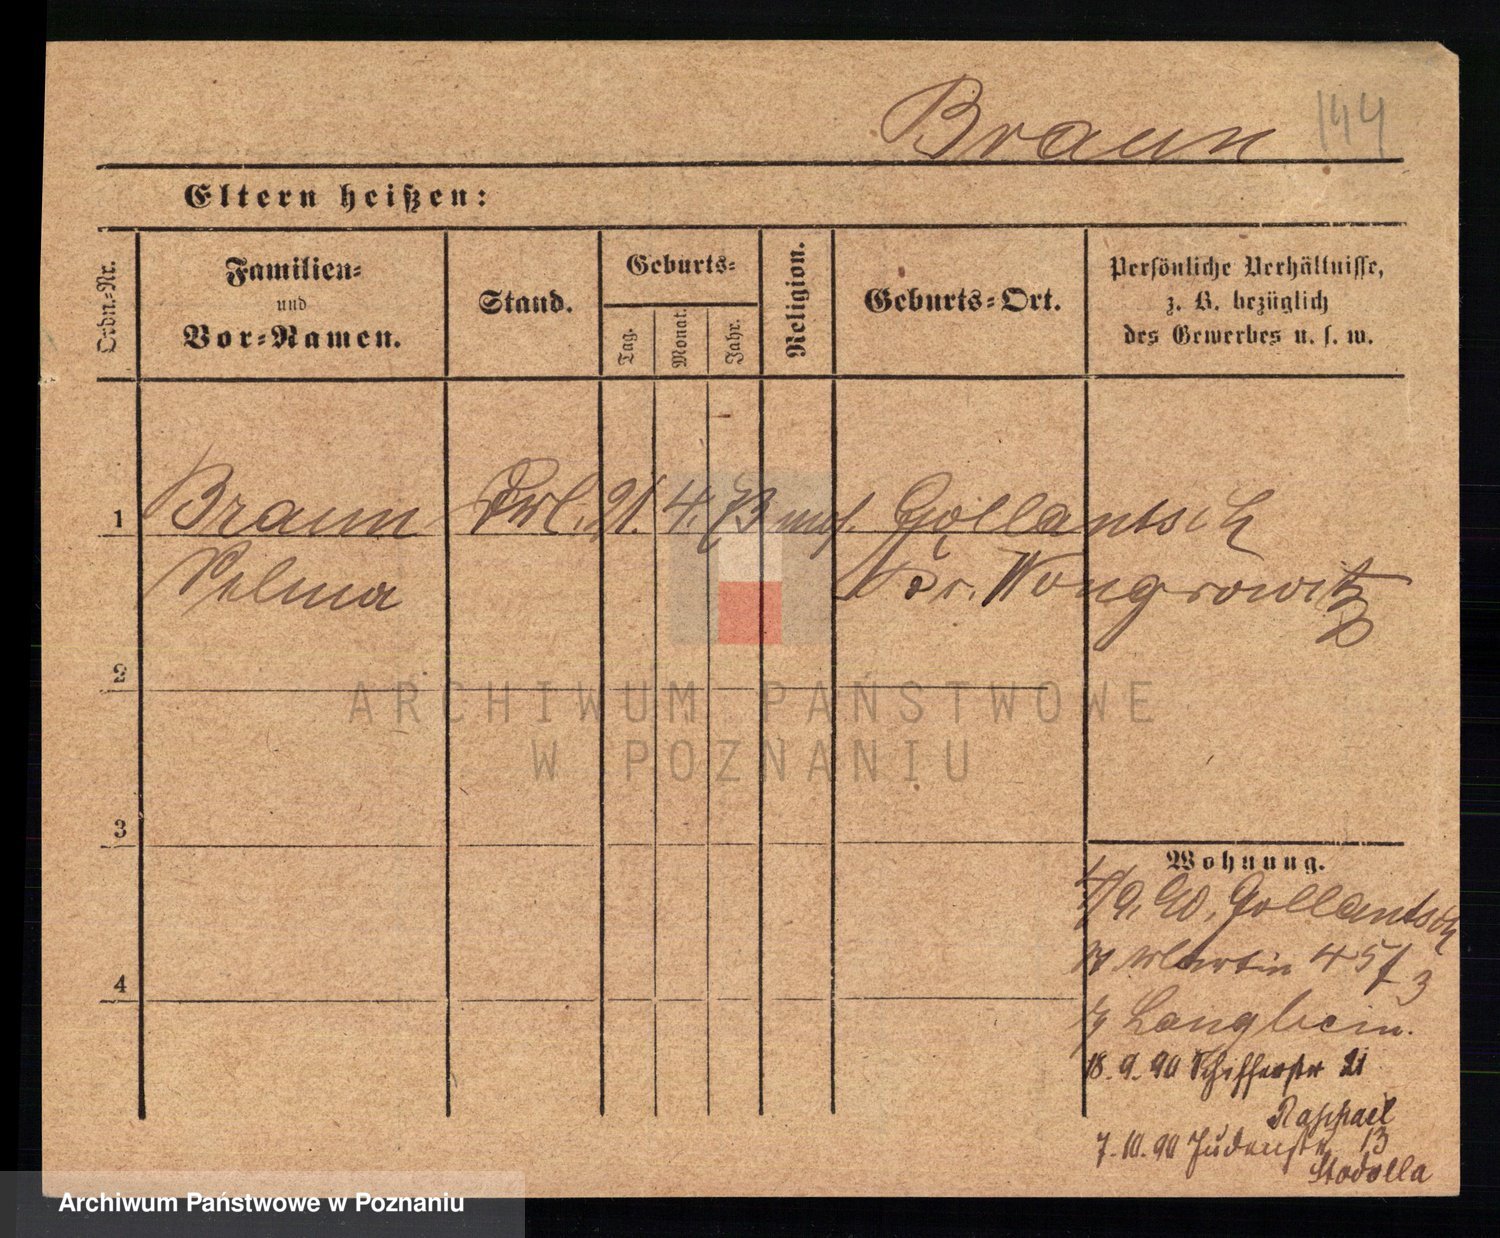 Braun 144
Eltern heißen:
Ordn.-Nr.
Familien-
und
Vor-Namen.
Stand.
Geburts-
Tag.
Monat.
Jahr.
Religion.
Geburts-Ort.
Persönliche Verhältnisse,
z. B. bezüglich
des Gewerbes u. s. w.
1 Braun Frl. 21. 4. 73 mos. Gollantsch
Selma Kr. Wongrowitz
2
3
4
Wohnung.
4/9. 90. Gollantsch
Martin 45
Langbein.
18. 9. 90 Schifferstr 21
Raphael
7. 10. 90 Judenstr 13
Stodolla
ARCHIWUM PAŃSTWOWE
W POZNANIU
Archiwum Państwowe w Poznaniu